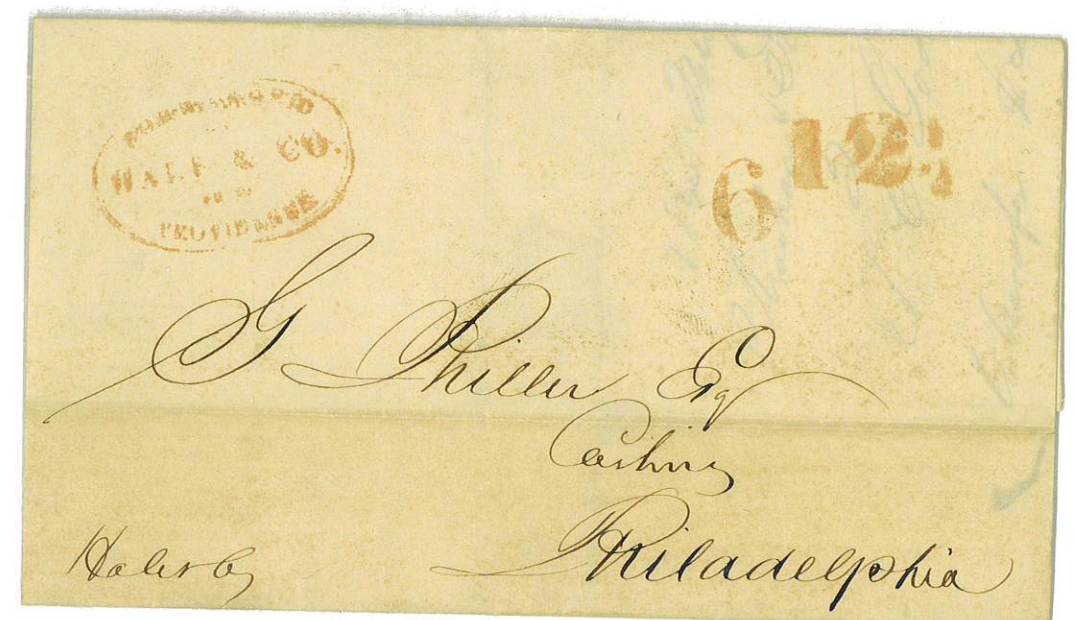 FORWARDED
HALE & CO.
PROVIDENCE
6 12½
G Philler Esq
Cashier
Philadelphia